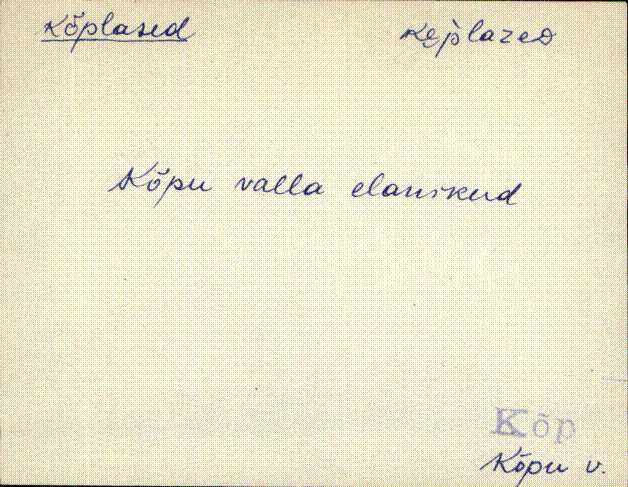 Kõplased ke̮plazeᴅ
Kõpu valla elanikud
Kõp
Kõpu v.